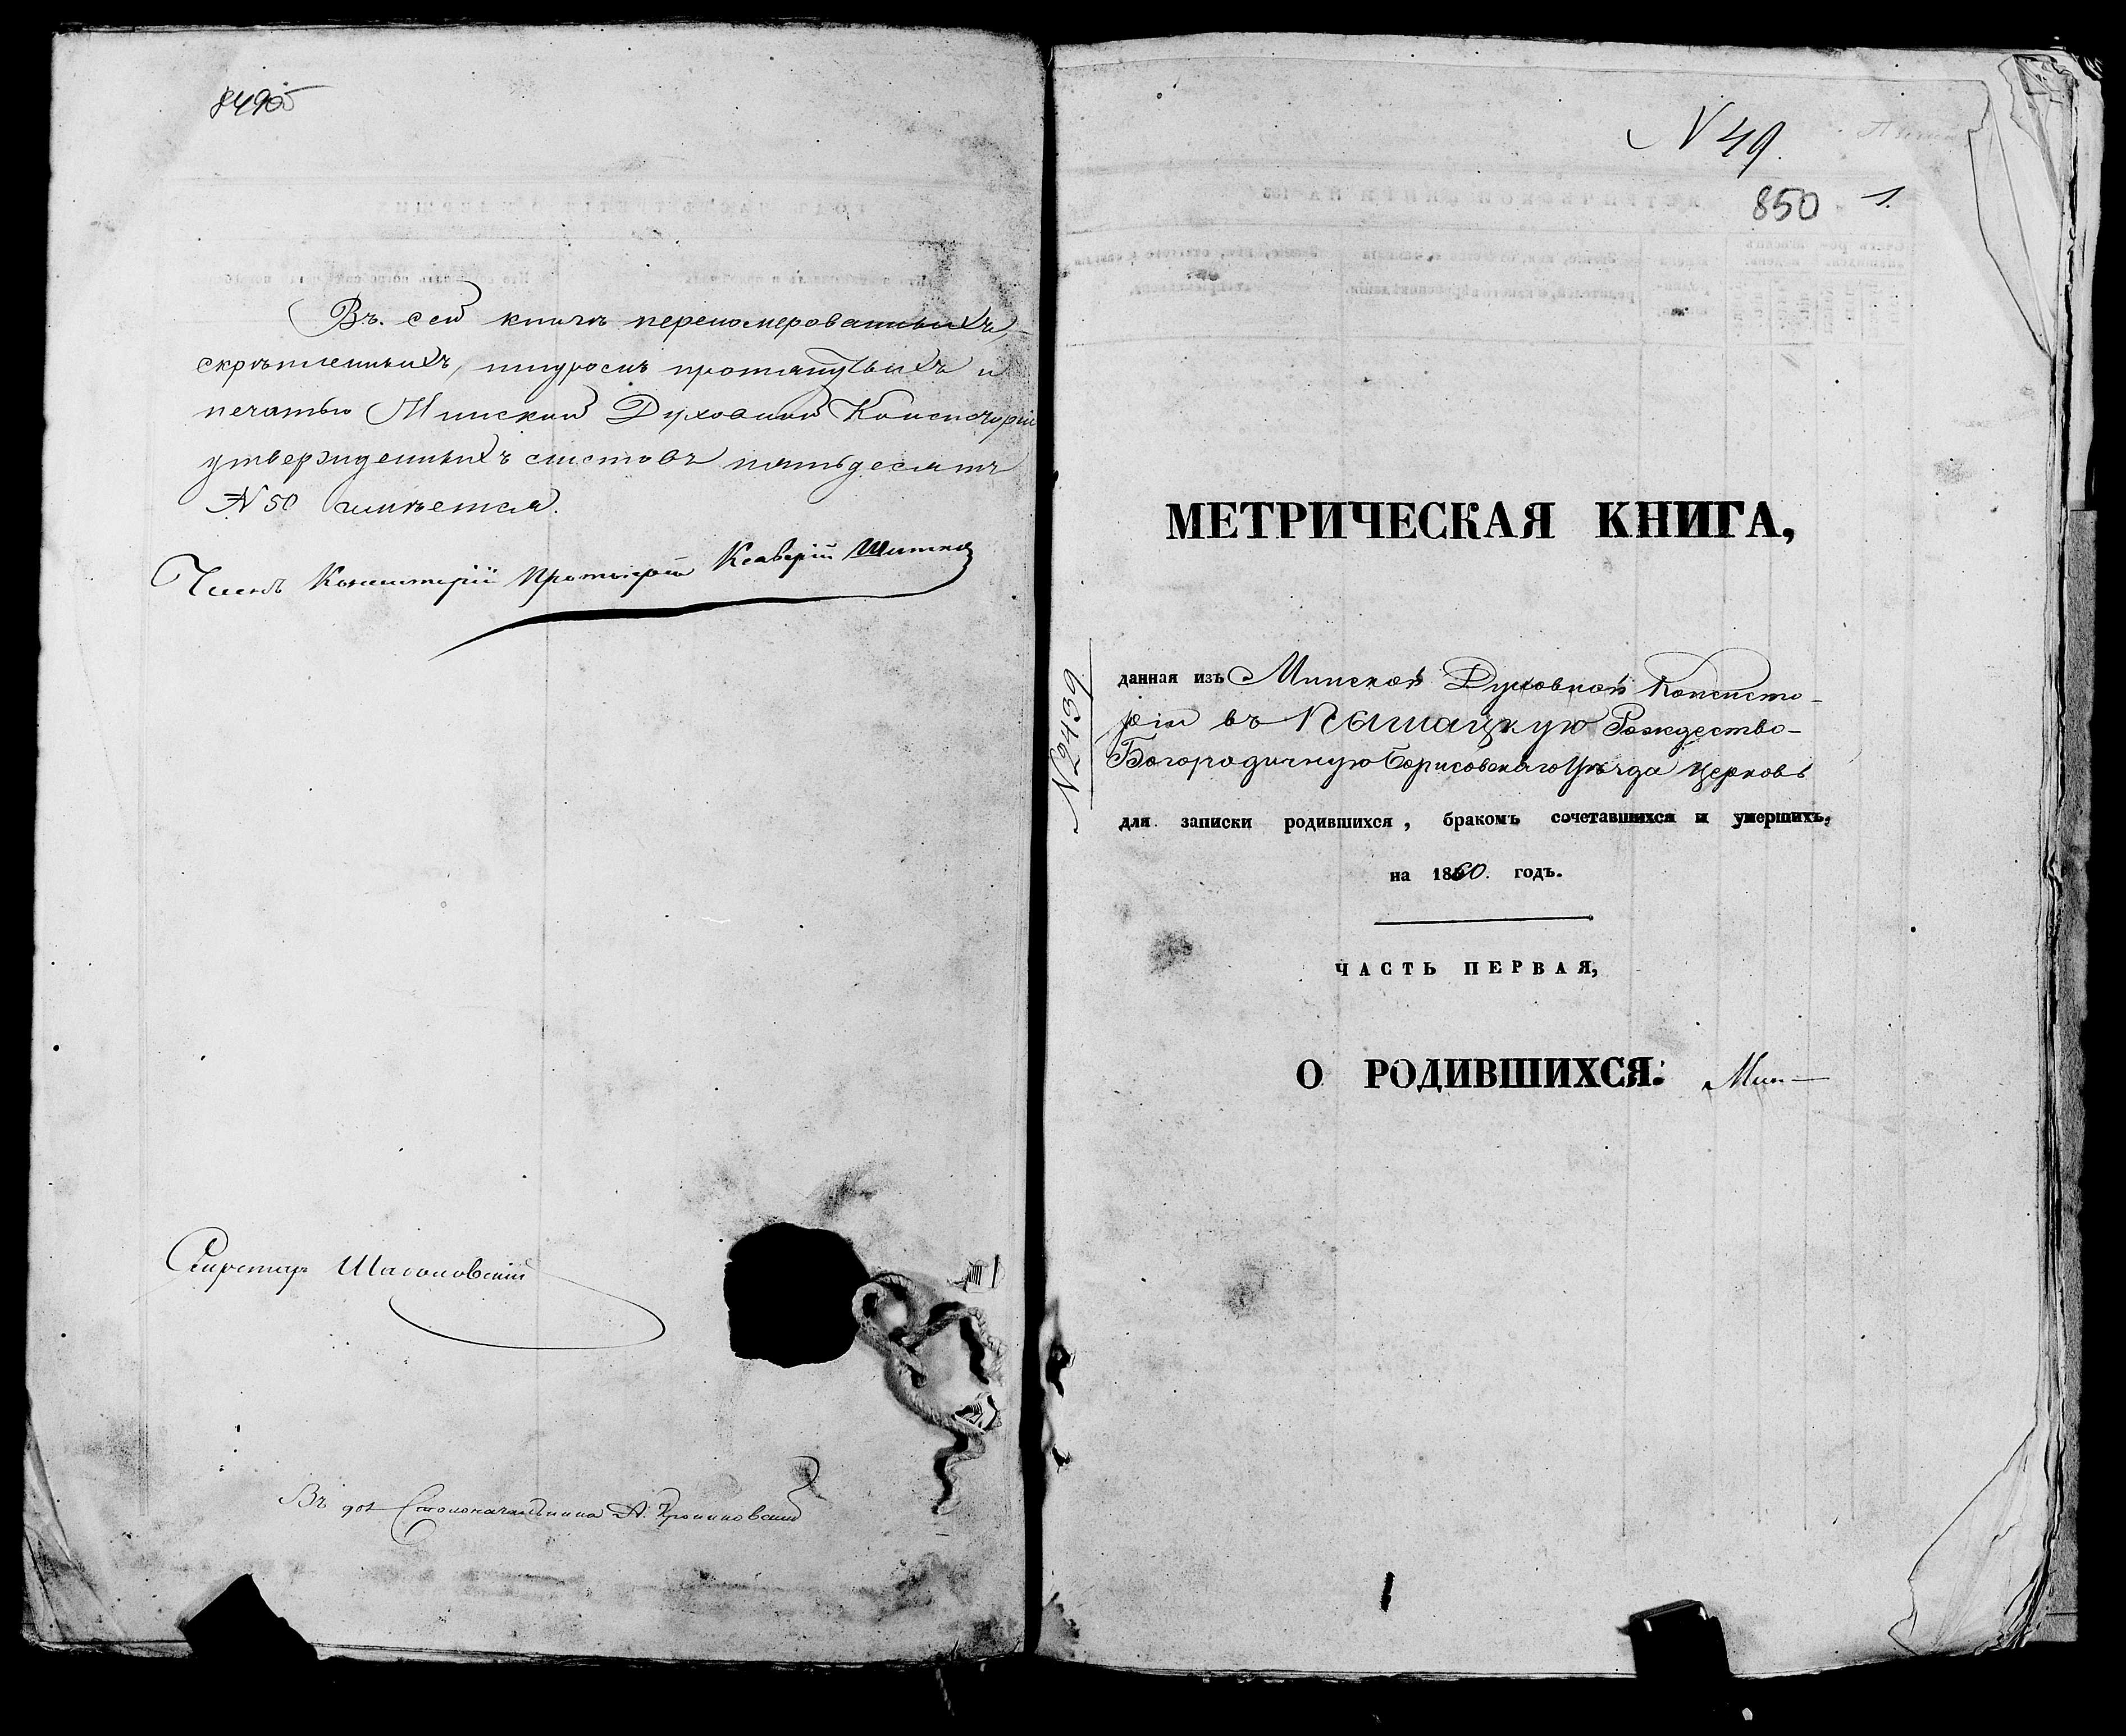 Въ сей книгѣ переномерованныхъ,
скрѣпленныхъ, шнуромъ протянутыхъ и
печатью Минской Духовной Консисторіи
утвержденныхъ листовъ пятьдесятъ
№ 50 имѣется.
Членъ Консисторіи Протоіерей Ксаверій
Секретарь
Въ дол Столоначальника А.
N 49.
850 1.
МЕТРИЧЕСКАЯ КНИГА,
№ 2439
данная изъ Минской Духовной Консисто-
ріи въ Пышацкую Рождество-
Богородичную Борисовскаго Уѣзда Церковь
для записки родившихся, бракомъ сочетавшихся и умершихъ,
на 1860. годъ.
ЧАСТЬ ПЕРВАЯ,
О РОДИВШИХСЯ: Мин—